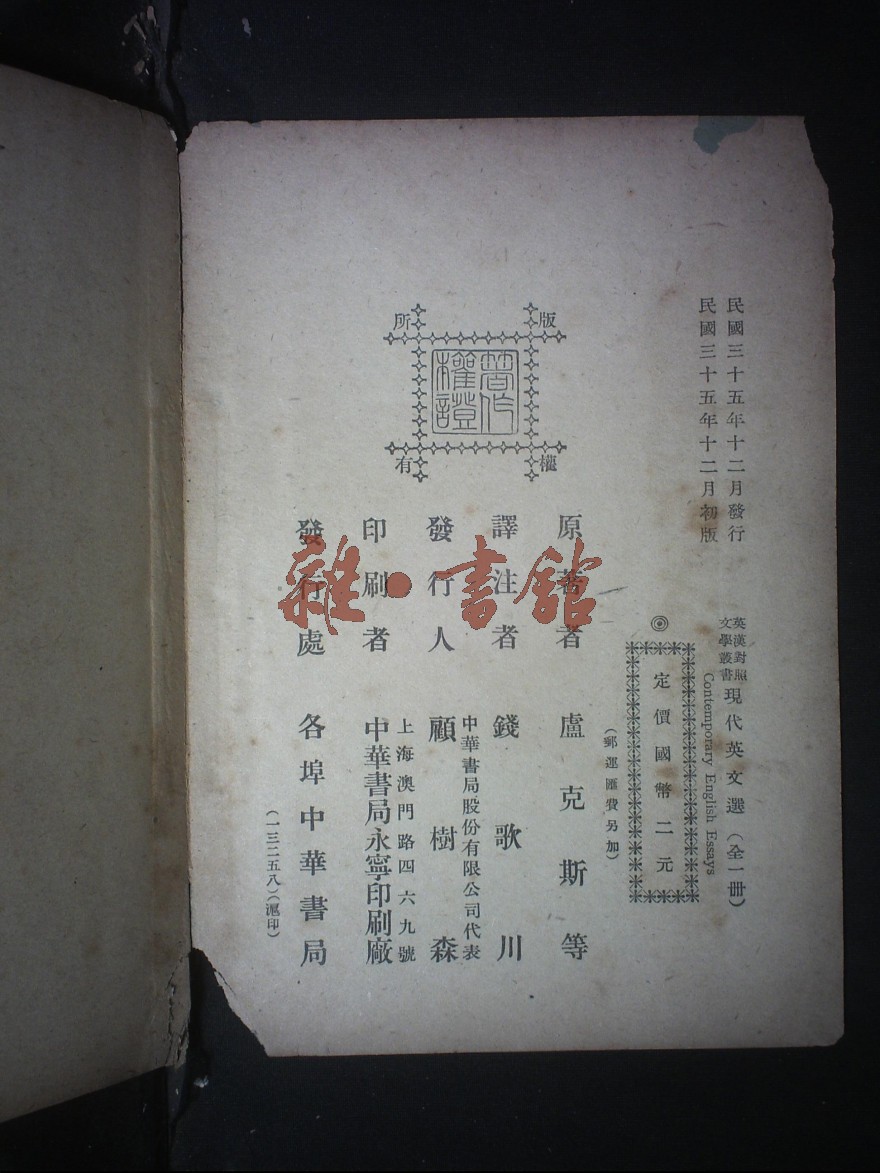 民國三十五年十二月發行
民國三十五年十二月初版
英漢對照
文學叢書
現代英文選(全一冊)
Contemporary English Essays
◎定價國幣二元
(郵運匯費另加)
版權所有
著作權證
原著者 盧克斯等
譯注者 錢歌川
中華書局股份有限公司代表
發行人 顧樹森
上海澳門路四六九號
印刷者 中華書局永寧印刷廠
發行處 各埠中華書局
(一三二五八)(滬印)
雜·書館